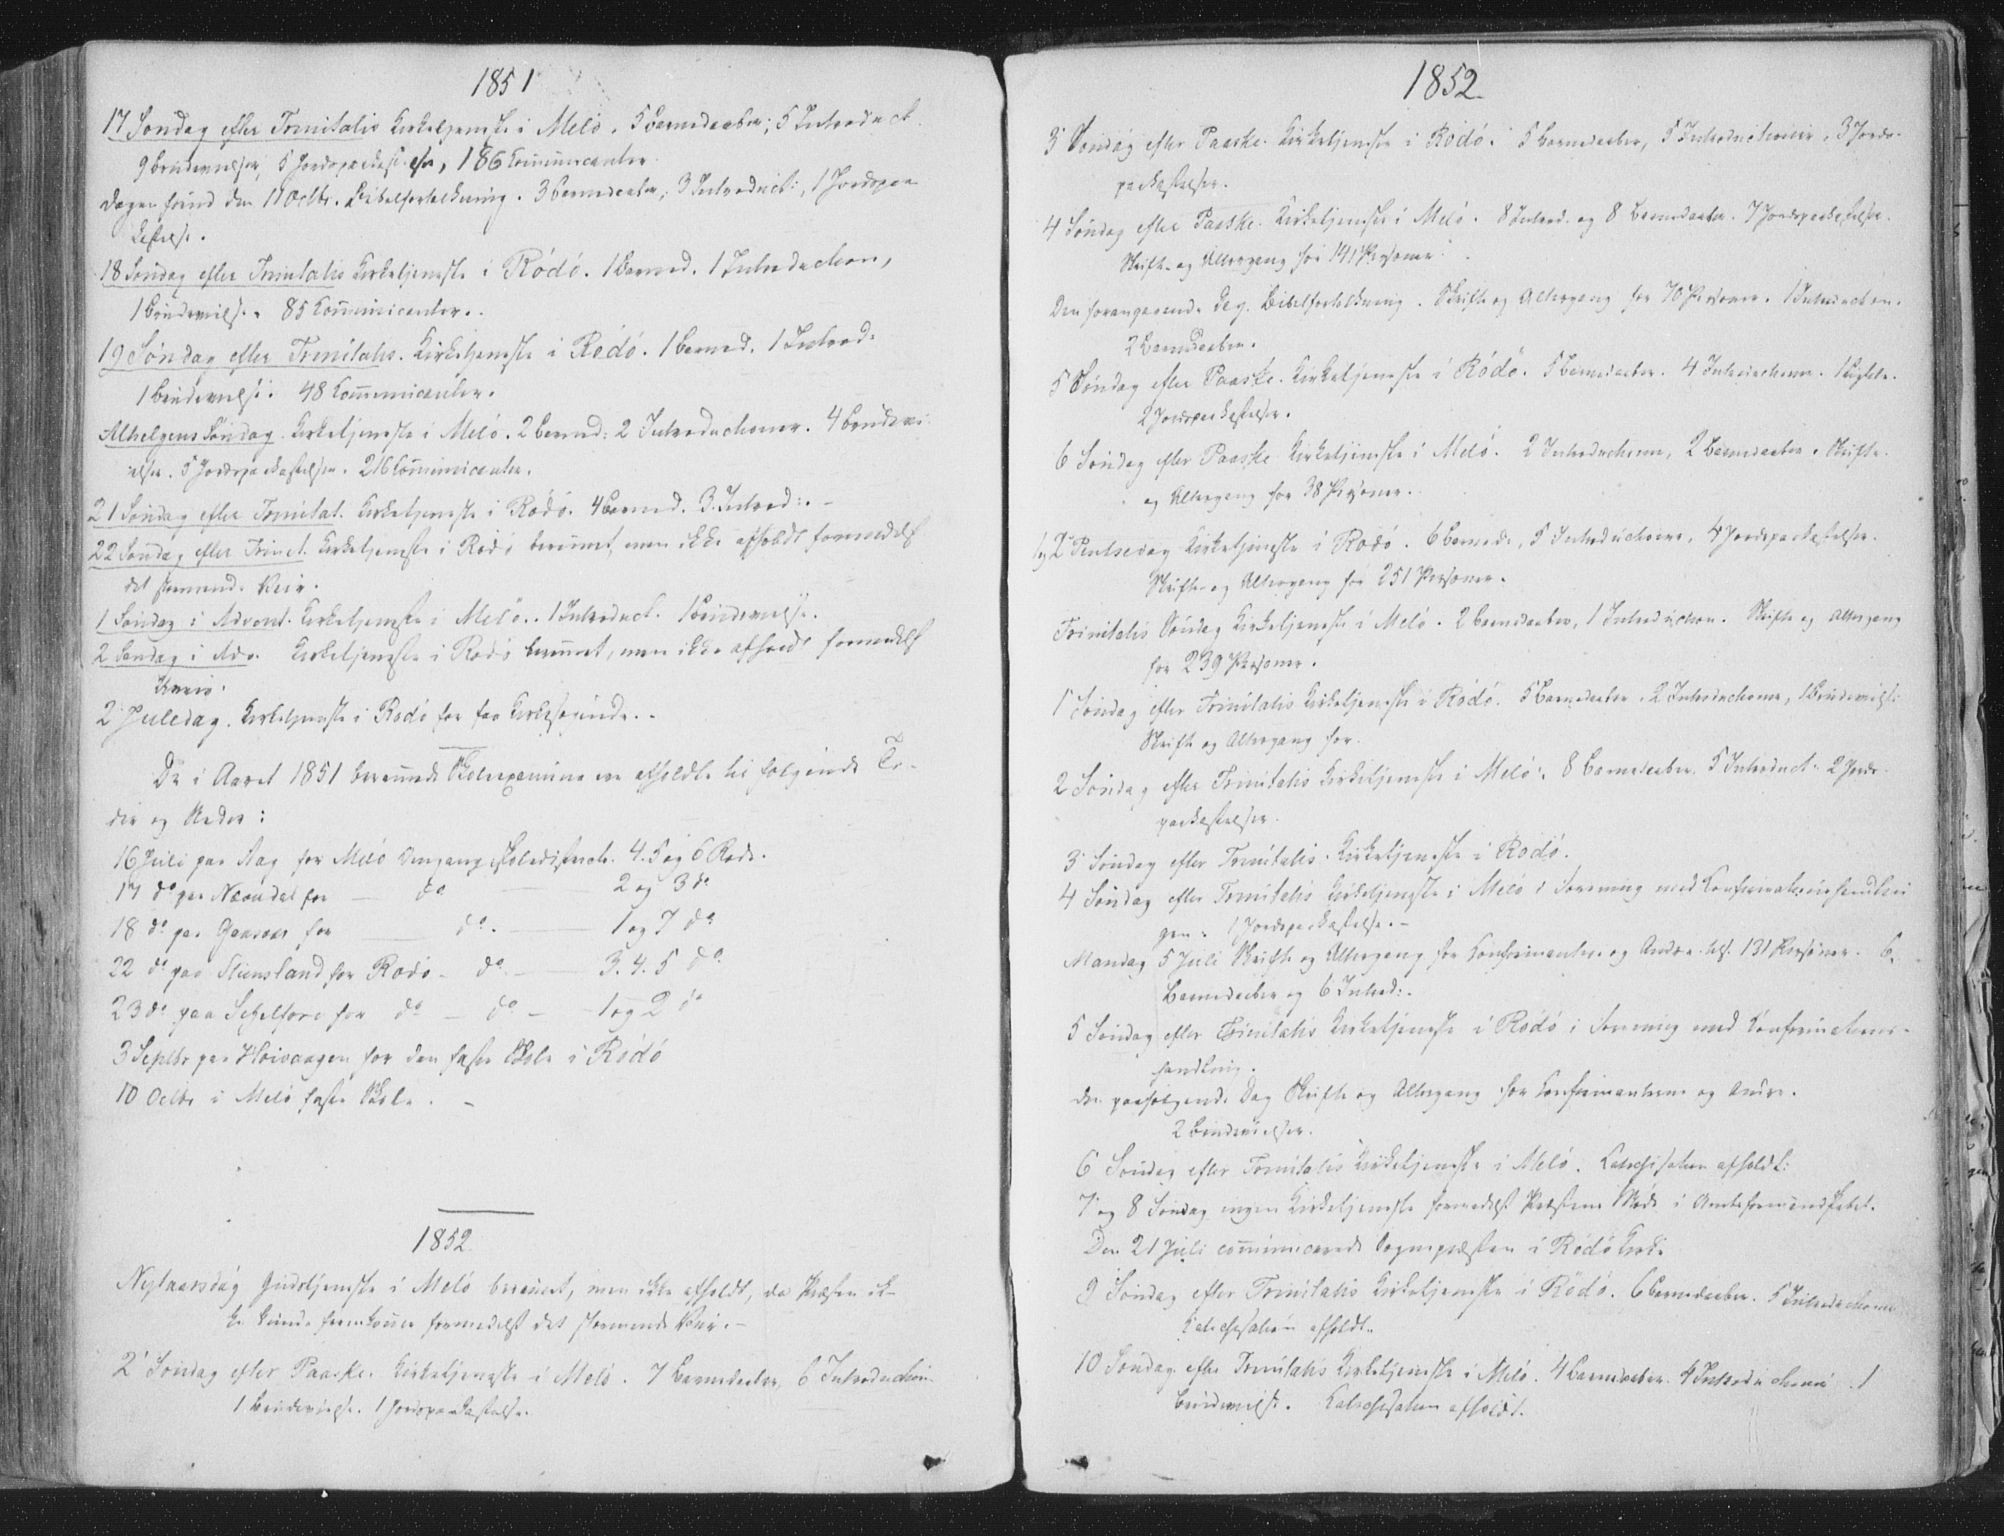 1851
17 Søndag efter Trinitatis Kirketjeneste i Melø. 5 Barnedaaber; 5 Introduct.
9 Brudevielser, 5 Jordspaakast.elser, 186 Communicanter.
Dagen forud den 11 Octbr. Bibelforklaring. 3 Barnedaaber; 3 Introduct:, 1 Jordspaa
kastelse.
18 Søndag efter Trinitatis Kirketjeneste i Rødø. 1 Barned. 1 Introduction,
1 Brudevielse. 85 Communicanter.
19 Søndag efter Trinitatis. Kirketjeneste i Rødø. 1 Barned. 1 Introd.
1 Brudevielse. 48 Communicanter.
Alhelgens Søndag. Kirketjeneste i Melø. 2 Barned: 2 Introductioner. 4 Brudevi
elser. 5 Jordspaakastelser. 216 Communicanter.
21 Søndag efter Trinitat. Kirketjeneste i Rødø. 4 Barned. 3 Introd:. -
22 Søndag efter Trinit. Kirketjeneste i Rødø berammet, men ikke afholdt formedelst
det stormende Veir.
1 Søndag i Advent. Kirketjeneste i Melø. 1 Introduct. 1 Brudevielse.
2 Søndag i Adv. Kirketjeneste i Rødø berammet, men ikke afholdt formedelst
Uveir.
2 Juledag. Kirketjeneste i Rødø for faa Kirkesøgende. -
De i Aaret 1851 berammede Skoleexamina ere afholdte til følgende Ti-
der og Steder:
16 Juli paa Aag for Melø Omgangsskoledistrict. 4. 5 og 6 Rode.
17 do paa Næverdal for — do — 2 og 3 do
18 do paa for — do. — 1 og 7 do
22 do paa Stiensland for Rødø - do - 3. 4. 5 do
23 do paa Selsfore for do - do - 1 og 2 do
3 Septbr paa Høivaagen for den faste Skole i Rødø
10 Octbr i Melø faste Skole. -
1852
Nytaarsdag Gudstjeneste i Melø berammet, men ikke afholdt, da Præsten ik-
ke kunde fremkomme formedelst det stormende Veir. -
2 Søndag efter Paaske. Kirketjeneste i Melø. 7 Barnedaaber, 6 Introduction
1 Brudevielse. 1 Jordspaakastelse.
1852
3 Søndag efter Paaske. Kirketjeneste i Rødø. 5 Barnedaaber, 5 Introductioner. 3 Jords-
paakastelser.
4 Søndag efter Paaske. Kirketjeneste i Melø. 8 Introd. og 8 Barnedaaber. 7 Jordspaakastelser.
Skrifte- og Altergang for 141 Personer.
Den foregaaende Dag. Bibelforklaring. Skrifte og Altergang for 70 Personer. 1 Introduction.
2 Barnedaaber.
5 Søndag efter Paaske. Kirketjeneste i Rødø. 5 Barnedaaber. 4 Introductioner.
2 Jordspaakastelser.
6 Søndag efter Paaske Kirketjeneste i Melø. 2 Introductioner, 2 Barnedaaber. Skrifte-
og Altergang for 38 Personer.
1 og 2 Pentsedag Kirketjeneste i Rødø. 6 Barnede, 5 Introductioner, 4 Jordspaakastelser.
Skrifte- og Altergang for 251 Personer.
Trinitatis Søndag Kirketjeneste i Melø. 2 Barnedaaber, 1 Introduction. Skrifte og Altergang
for 239 Personer.
1 Søndag efter Trinitatis Kirketjeneste i Rødø. 5 Barnedaaber. 2 Introductioner, 1 Brudevielse
Skrifte og Altergang for.
2 Søndag efter Trinitatis Kirketjeneste i Melø. 8 Barnedaaber. 5 Introduct. 2 Jords-
paakastelser.
3 Søndag efter Trinitatis. Kirketjeneste i Rødø.
4 Søndag efter Trinitatis Kirketjeneste i Melø i Forening med Confirmationshandlin
gen. 1 Jordspaakastelse. -
Mandag 5 Juli Skrifte og Altergang for Confirmanter og Andre 131 Personer. 6
Barnedaaber og 6 Introd:.
5 Søndag efter Trinitatis Kirketjeneste i Rødø i Forening med Confirmations-
handling.
Den paafølgende Dag Skrifte og Altergang for Confirmanterne og Andre.
2 Brudevielser.
6 Søndag efter Trinitatis Kirketjeneste i Melø. Catechisation afholdt.
7 og 8 Søndag ingen Kirketjeneste formedelst Præstens Møde i Amtsformandskabet.
Den 21 Juli communicerede Sognepræsten i Rødø Kirke
9 Søndag efter Trinitatis Kirketjeneste i Rødø. 6 Barnedaaber. 5 Introductioner
Catechisation afholdt.
10 Søndag efter Trinitatis Kirketjeneste i Melø. 4 Barnedaaber. 4 Introductioner. 1
Brudevielse. Catechisation afholdt.